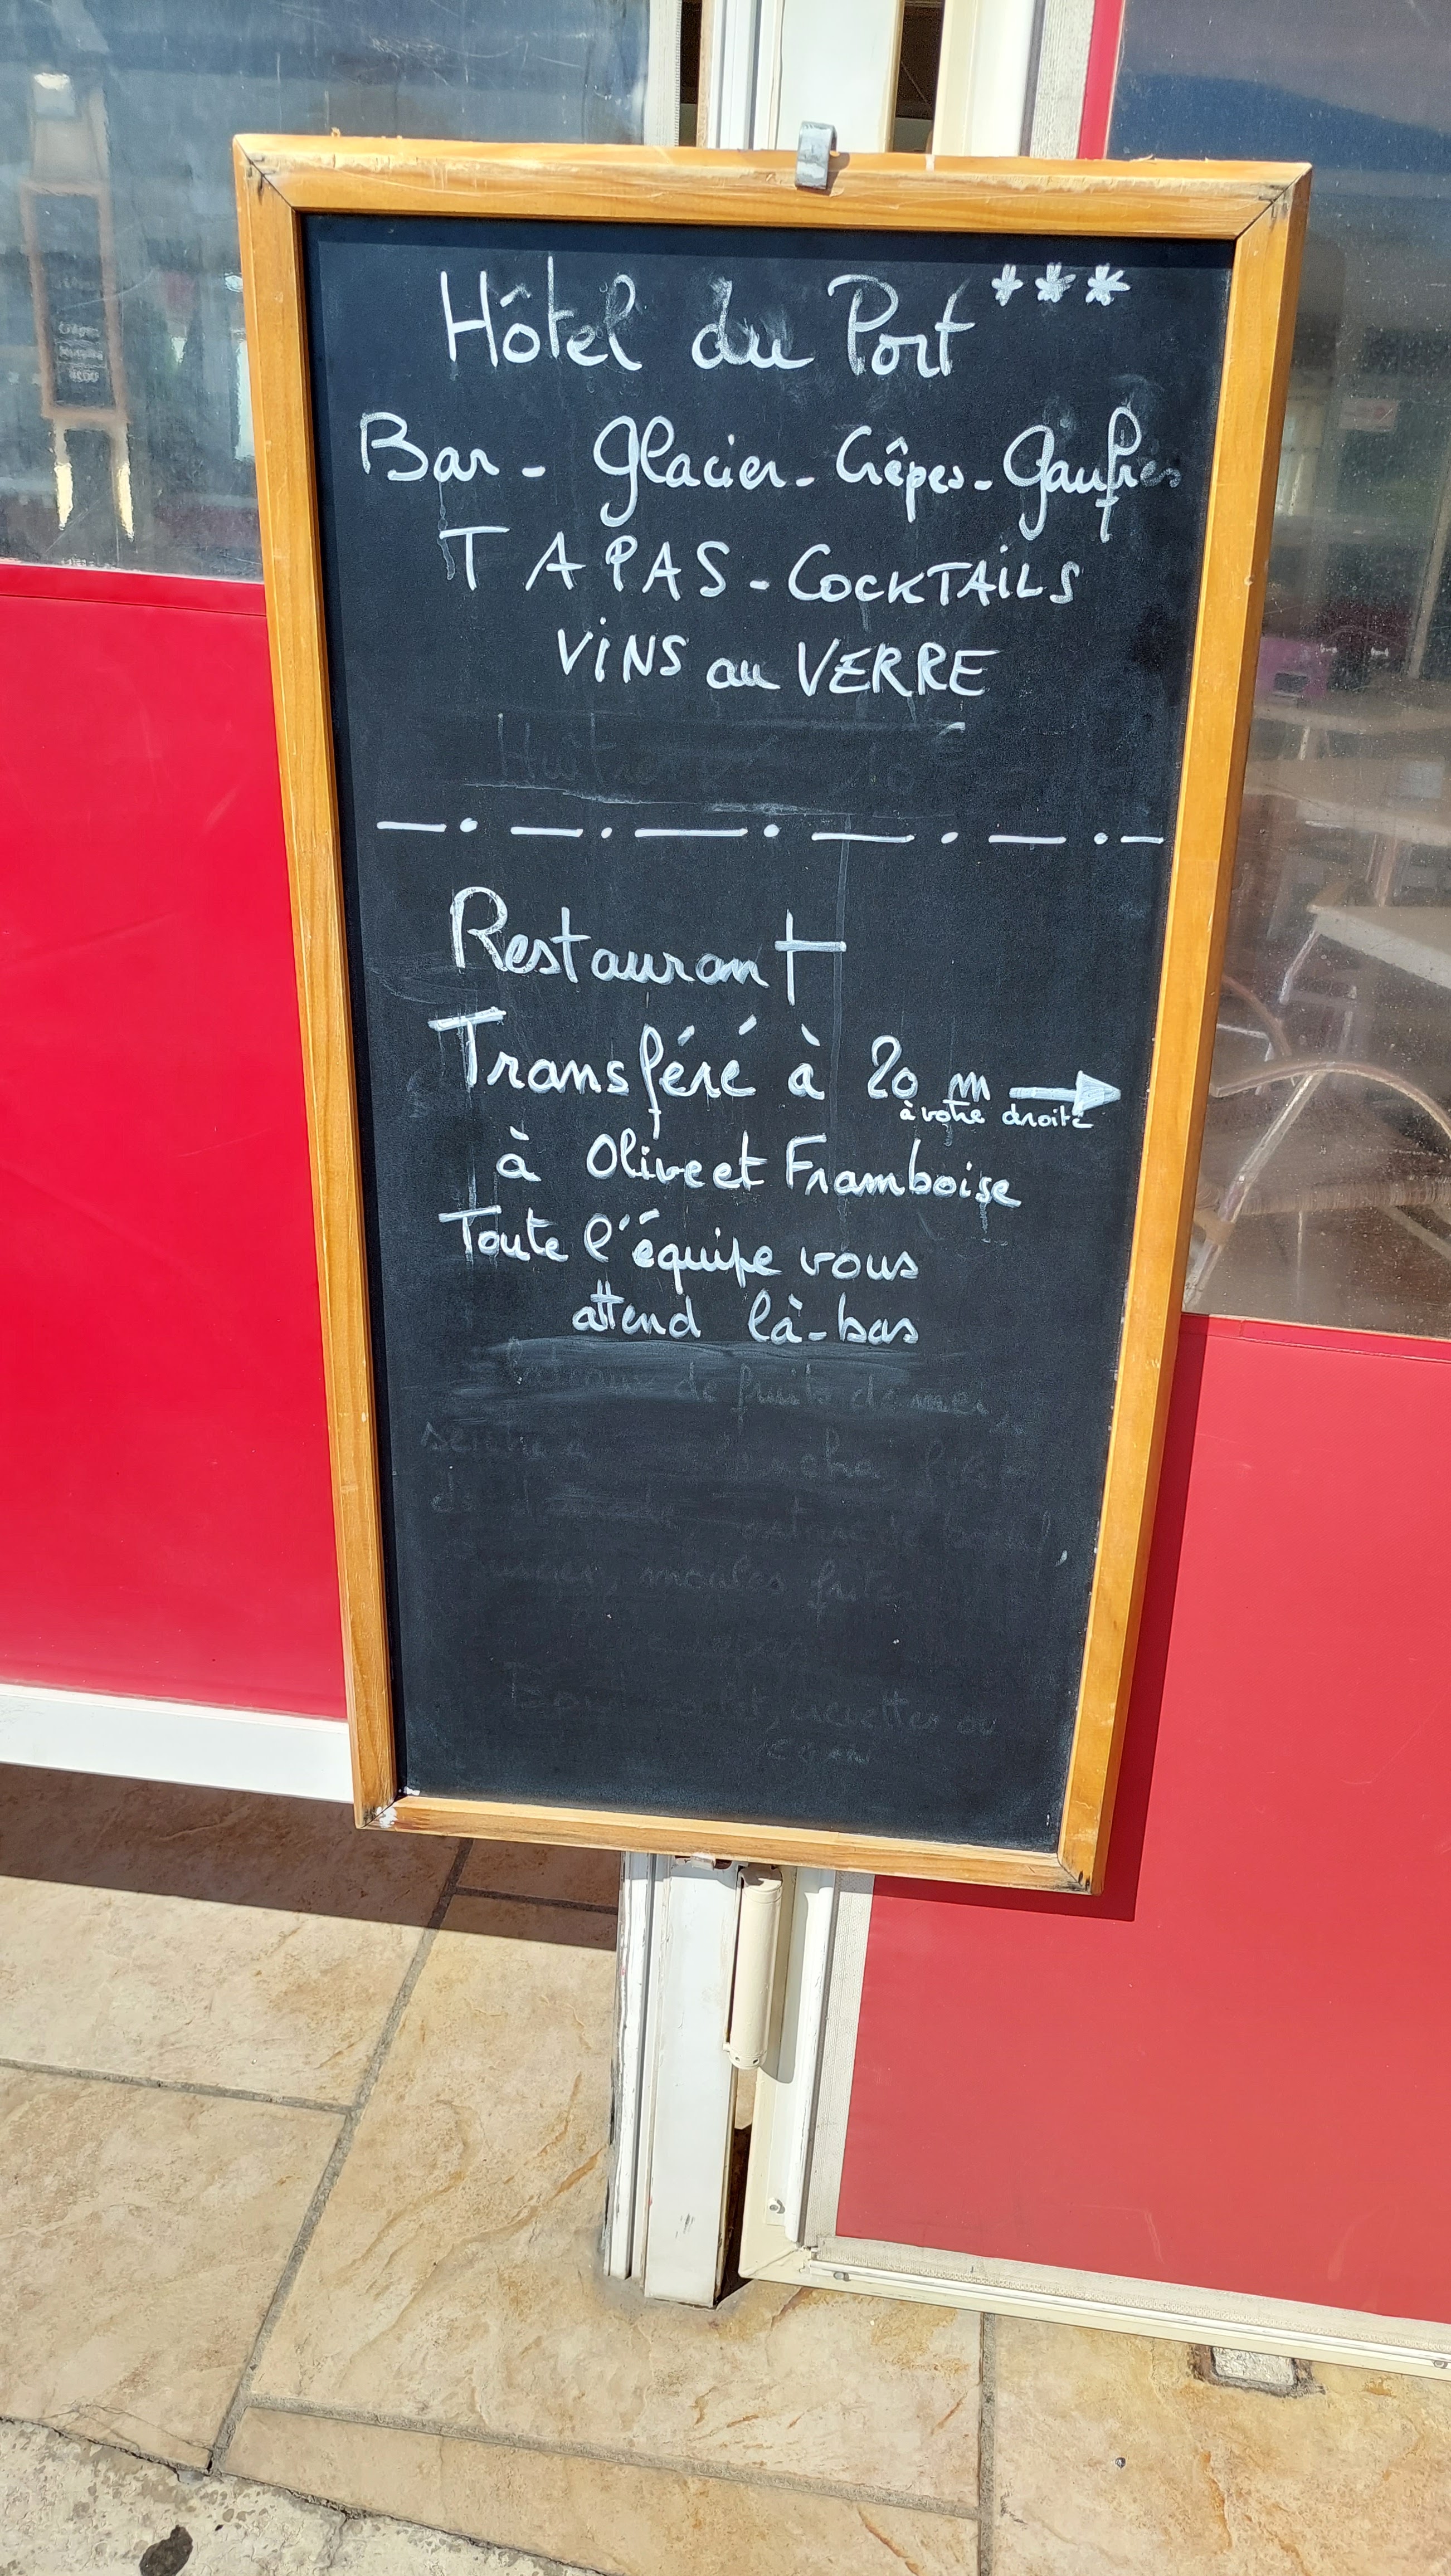 Hôtel du Port ***
Bar - Glacier - Crêpes - Gaufres
TAPAS - COCKTAILS
VINS au VERRE
Restaurant
Transféré à 20 m →
à votre droite
à Olive et Framboise
Toute l'équipe vous
attend là-bas
fruits de mer,
moules frites
crevettes ou